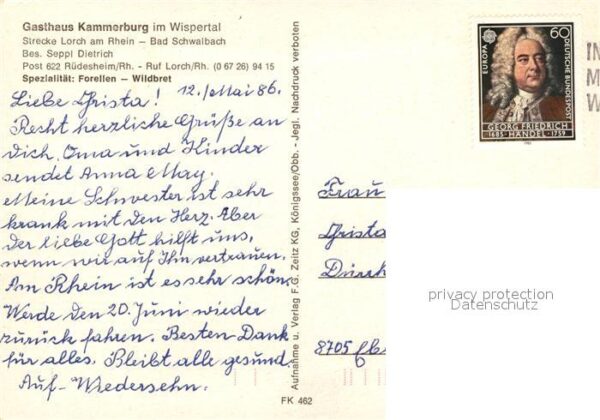 Gasthaus Kammerburg im Wispertal
Strecke Lorch am Rhein – Bad Schwalbach
Bes. Seppl Dietrich
Post 622 Rüdesheim/Rh. - Ruf Lorch/Rh. (0 67 26) 94 15
Spezialität: Forellen – Wildbret
12./Mai 86.
Liebe Christa!
Recht herzliche Grüße an
dich, Oma und Kinder
sendet Anna May.
Meine Schwester ist sehr
krank mit den Herz. Aber
der liebe Gott hilft uns,
wenn wir auf Ihn vertrauen.
Am Rhein ist es sehr schön
Werde den 20. Juni wieder
zurück fahren. Besten Dank
für alles. Bleibt alle gesund.
Auf-Wiedersehn.
Aufnahme u. Verlag F.G. Zeitz KG, Königssee/Obb. - Jegl. Nachdruck verboten
FK 462
EUROPA
60
DEUTSCHE BUNDESPOST
GEORG FRIEDRICH
1685 HÄNDEL 1759
Frau
Christa
8705
privacy protection
Datenschutz